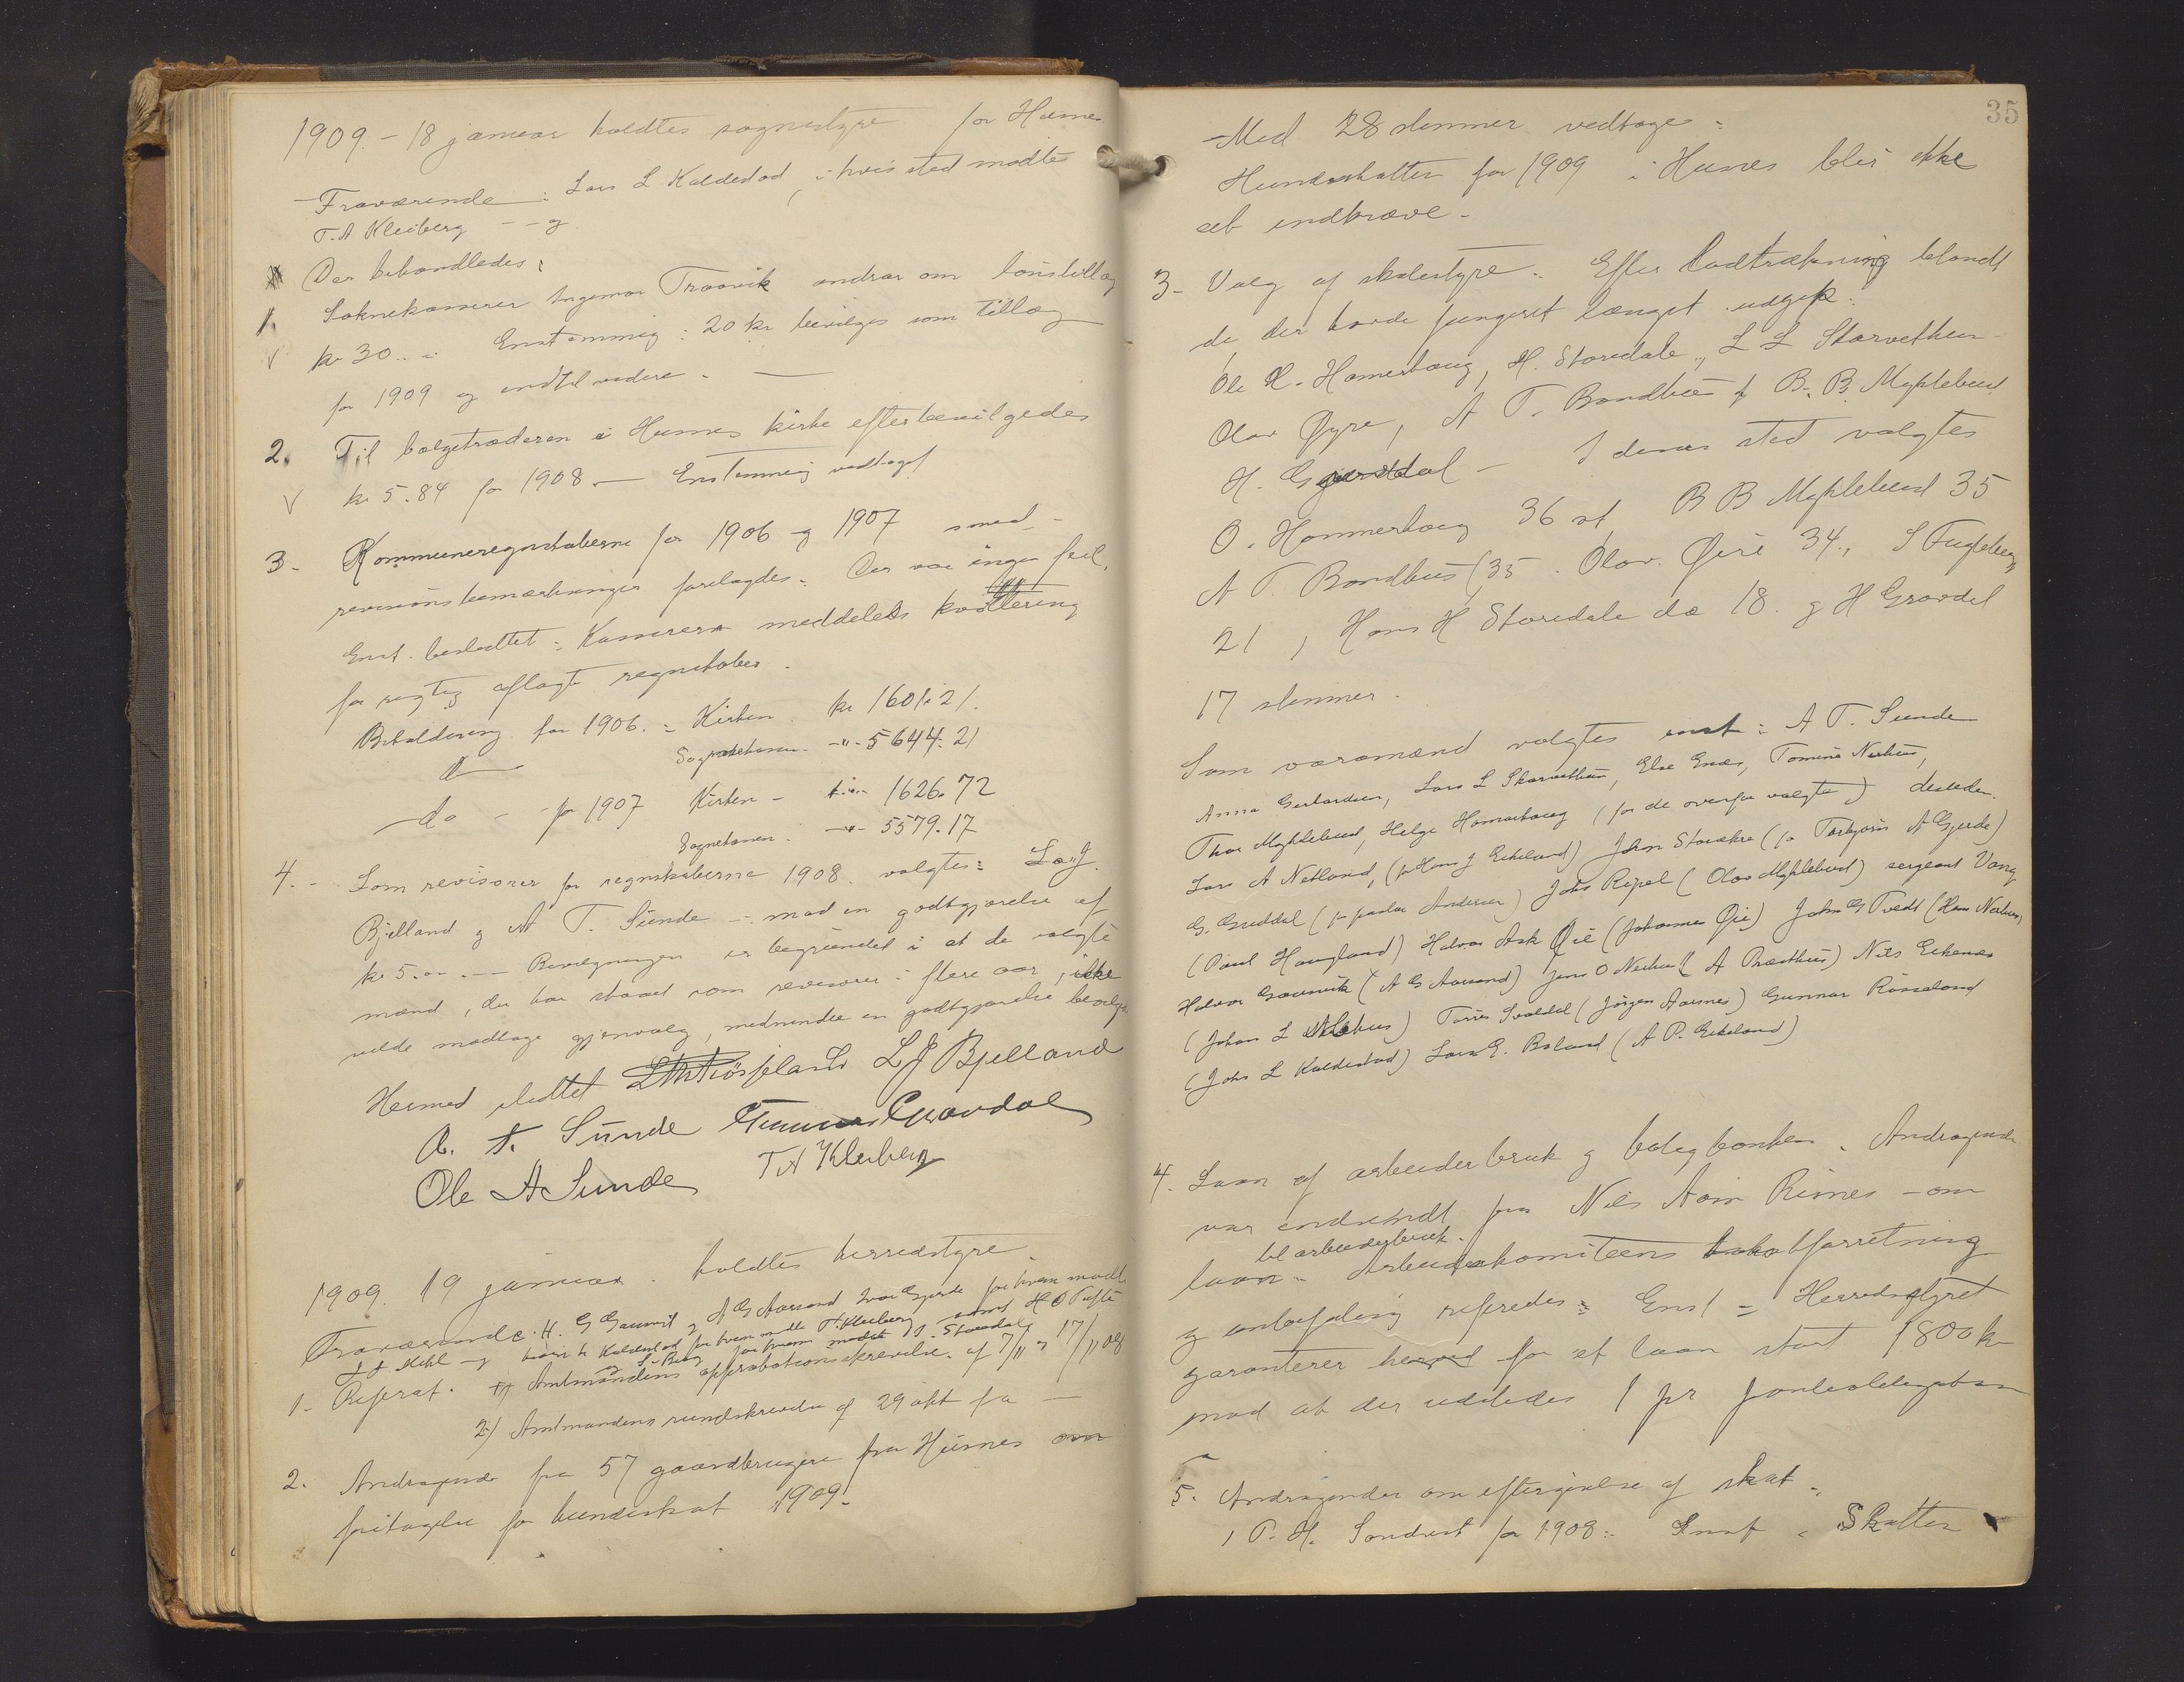 1909. - 18 januar holdtes sognestyre for Husnes
Fraværende: Lars L Kaldestad, i hvis sted mødte
T. A Kleiberg -- og
Der behandledes:
1. Soknekasserer Ingemar Traavik andrar om lønstillæg
kr 30.. - Enstemmig: 20 kr bevilges som tillæg
for 1909 og indtil videre. -
2. Til bælgetræderen i Husnes kirke efterbevilgedes
kr 5.84 for 1908. - Enstemmig vedtaget
3. Kommuneregnskaberne for 1906 og 1907 med
revisionsbemærkninger forelagdes. Der var ingen feil.
Enst. besluttet: Kasserern meddeles kvittering
for rigtig aflagte regnskaber.
Beholdning for 1906. = Kirken kr 1601.21.
do Sognekassen -"- 5644.21
do - for 1907 Kirken - kr. 1626.72
Sognekassen. -"- 5579.17
4. - Som revisorer for regnskaberne 1908 valgtes: La. J.
Bjelland og A T. Sunde - mod en godtgjørelse af
kr 5.00. -- Bevilgningen er begrundet i at de valgte
mænd, der har staaet som revisorer i flere aar, ikke
vilde modtage gjenvalg, medmindre en godtgjørelse bevilges
Hermed sluttet L J Bjelland
A. T. Sunde Gunnar Guddal
Ole A Sunde T A Kleiberg
1909. 19 januar. holdtes herredstyre.
Fraværende: H. G Gaunvik, A G Aarsand Ivar Gjerde for hvem mødte
J J Kihl og Lars L Kaldestad for hvem mødte T. Kleiberg samt H O Tufte
for hvem mødte H. Støredale
1. Referat. 1) Amtmandens approbationsskrivelse af 7/11 og 17/11 08
2) Amtmandens rundskrivelse af 29 okt f a -
2. Andragende fra 57 gaardbrugere fra Husnes om
fritagelse for hundeskat 1909.
35
Med 28 stemmer vedtoges:
Hundeskatten for 1909 i Husnes blir ikke
at indkræve.
3 - Valg af skolestyre. Efter lodtrækning blandt
de der havde fungeret længst udgik:
Ole H. Hamerhaug, H. Støredale, L L Skarvethun
Olav Øyre, A T. Bondhus, B. B. Myklebust
H. Gravdal - I deres sted valgtes
O. Hammerhaug 36 st, B B Myklebust 35
A T. Bondhus (35. Olav Øire 34., S Fugleberg
21, Hans H Støredale do 18. og H Gravdal
17 stemmer.
Som varamænd valgtes enst: A T. Sunde
Anna Gerhardsen, Lars L Skarvethun, Else Enæs, Tomine Neshus,
Thor Myklebust, Helge Hamarhaug (for de ovenfor valgte) desuden
Lars A Netland, (for Hans J Eikeland) John Storakre (for Torbjørn A Gjerde)
G. Guddal (for pastor Andersen) Johs Ripel (Olav Myklebust) sergeant Vang
(Paul Haugland) Halvor Ask Øie (Johannes Øie) John G Tvedt (Hans Neshus)
Halvor Gaunvik (A G Aarsand) Jens O Neshus (A Præsthus) Nils Eikenæs
(Johan L Nehus) Torris Svaldal (Jørgen Aarsnes) Gunnar Røsseland
(Johs L Kaldestad) Lars E. Boland (A P. Eikeland)
4. Laan af arbeiderbruk og boligbanken. Andragende
var indsendt fra Nils Aein Rimes - om
til arbeiderbruk.
laan. Arbeiderkomiteens takstforretning
og anbefaling refererdes: Enst = Herredstyret
garanterer herved for et laan stort 1800 kr
mod at der uddeles 1 pr
5. Andragender om eftergivelse af skat.
1 P. H. Sondest for 1908: Enst. Skatten